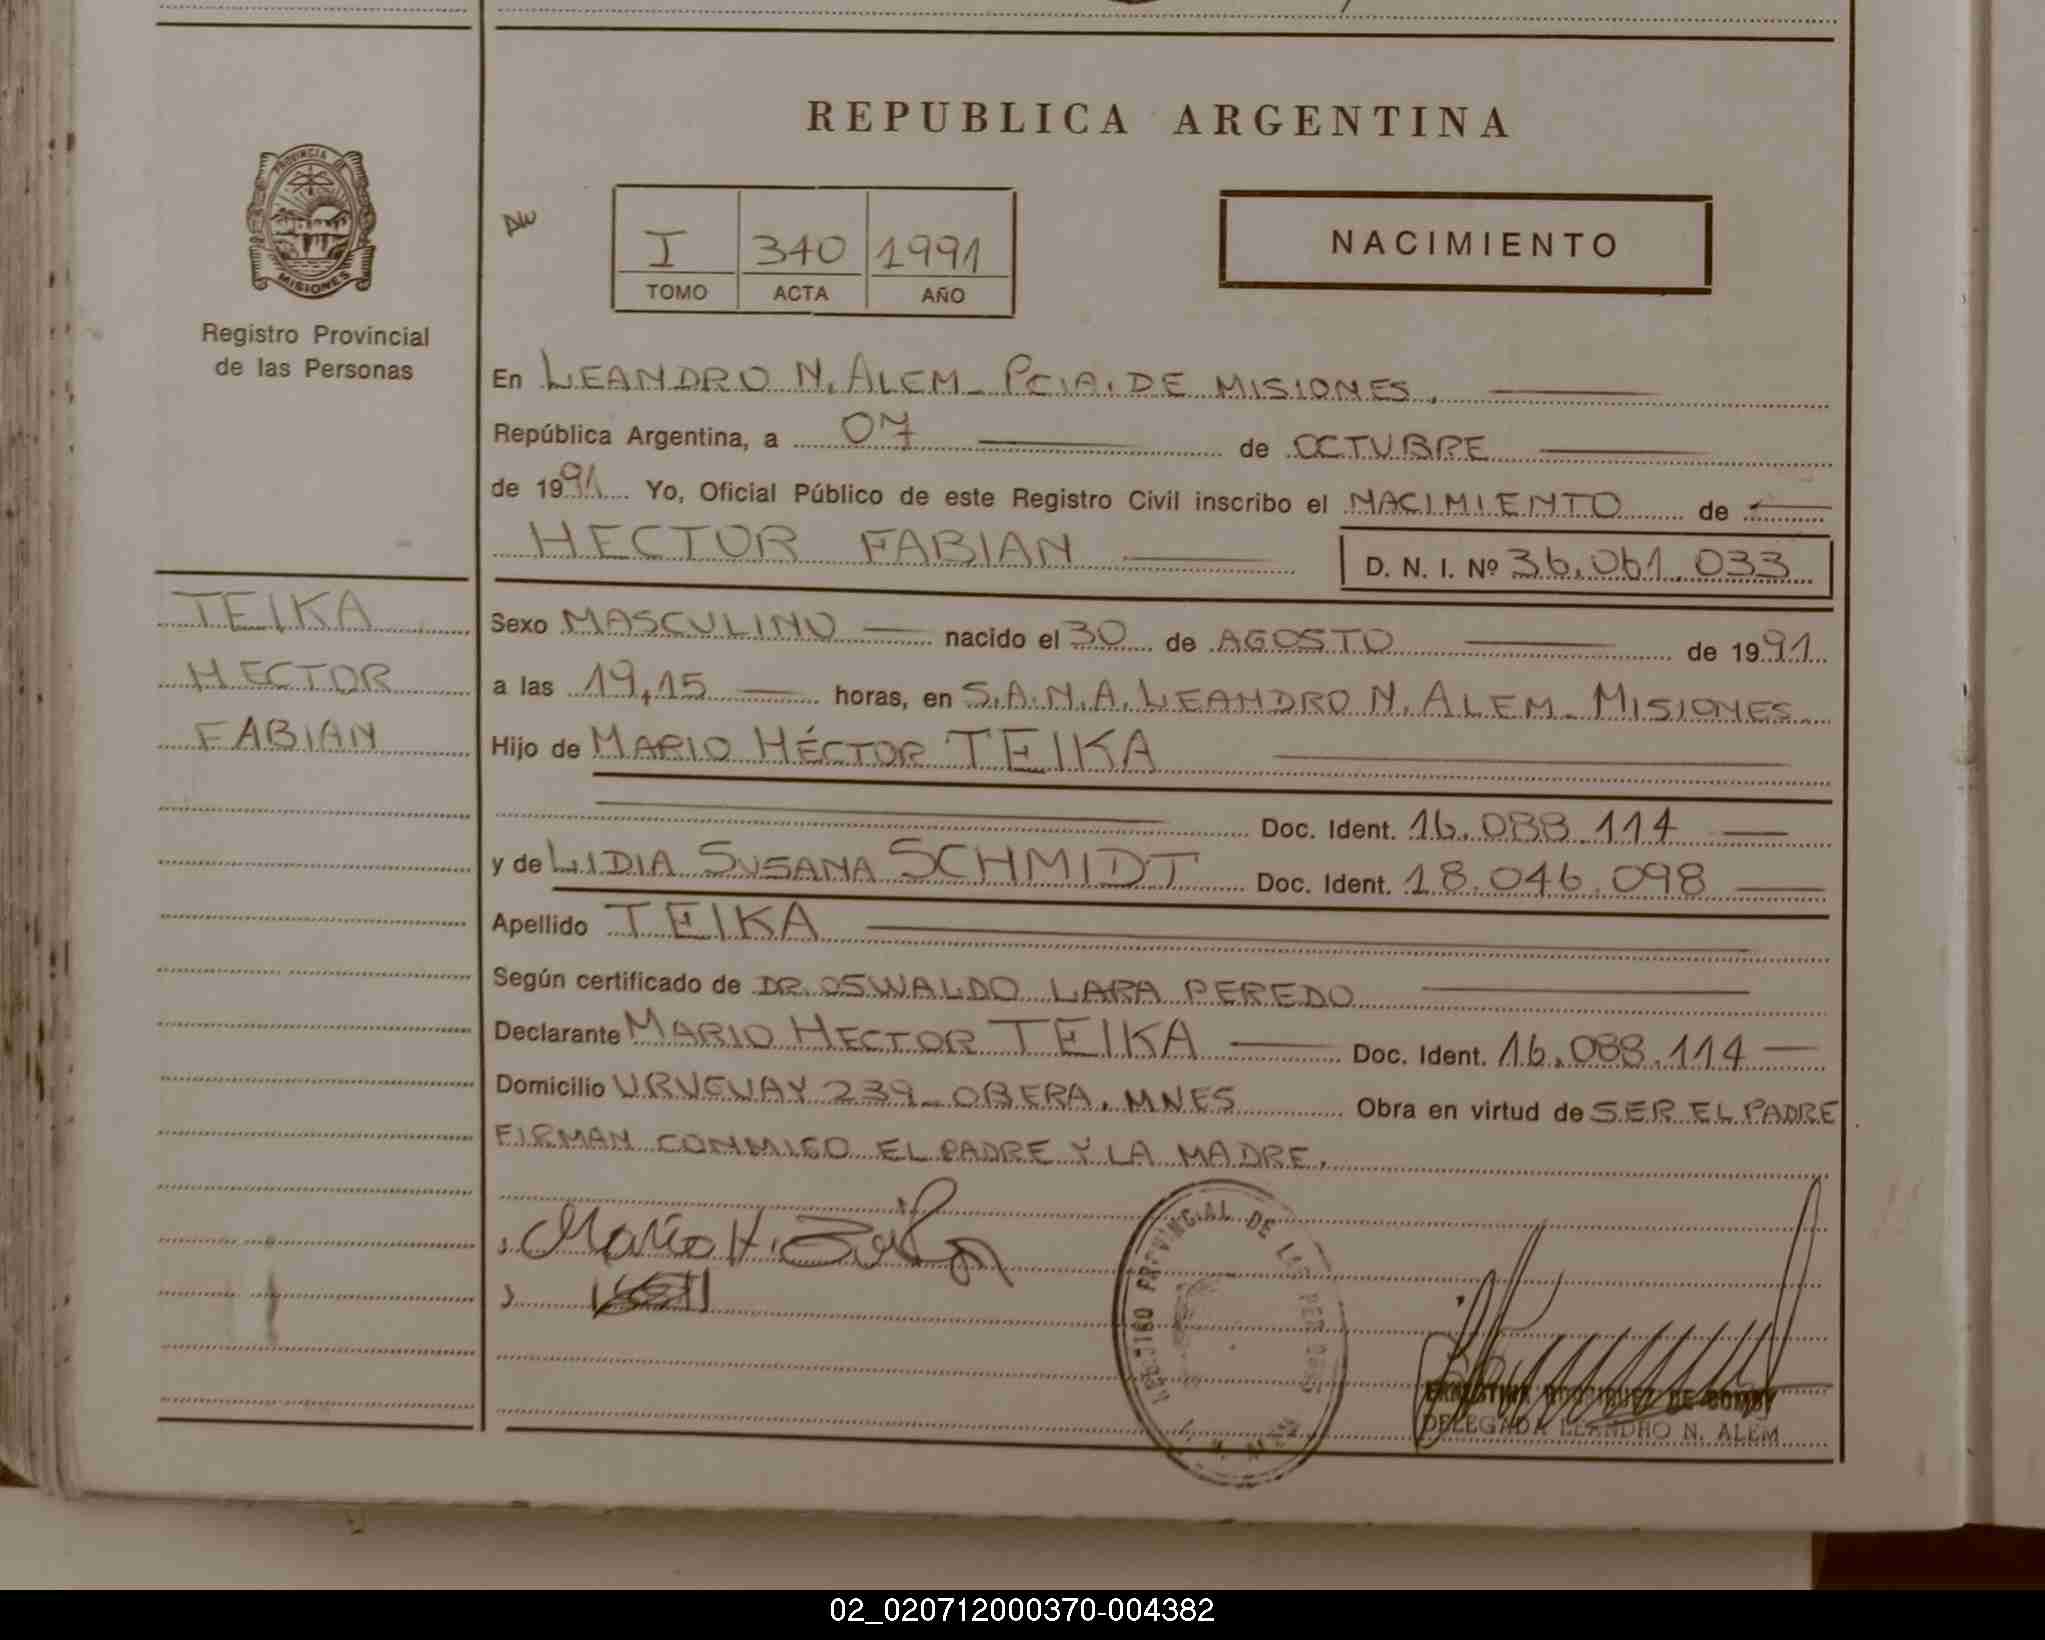 REPUBLICA ARGENTINA
PROVINCIA DE
MISIONES
Registro Provincial
de las Personas
I 340 1991
TOMO ACTA AÑO
NACIMIENTO
En LEANDRO N. ALEM_ PCIA. DE MISIONES.
República Argentina, a 07 de OCTUBRE
de 1991 Yo, Oficial Público de este Registro Civil inscribo el NACIMIENTO de
HECTOR FABIAN D. N. I. Nº 36.061.033
TEIKA
HECTOR
FABIAN
Sexo MASCULINO nacido el 30 de AGOSTO de 1991
a las 19,15 horas, en S.A.N.A. LEANDRO N. ALEM_ MISIONES
Hijo de MARIO HÉCTOR TEIKA
Doc. Ident. 16.088.114
y de LIDIA SUSANA SCHMIDT Doc. Ident. 18.046.098
Apellido TEIKA
Según certificado de DR. OSWALDO LARA PEREDO
Declarante MARIO HECTOR TEIKA Doc. Ident. 16.088.114
Domicilio URUGUAY 239_ OBERA. MNES Obra en virtud de SER EL PADRE
FIRMAN CONMIGO EL PADRE Y LA MADRE.
Mario H.
REGISTRO PROVINCIAL DE LAS PERSONAS
ERNESTINA RODRIGUEZ DE
DELEGADA LEANDRO N. ALEM
02_020712000370-004382